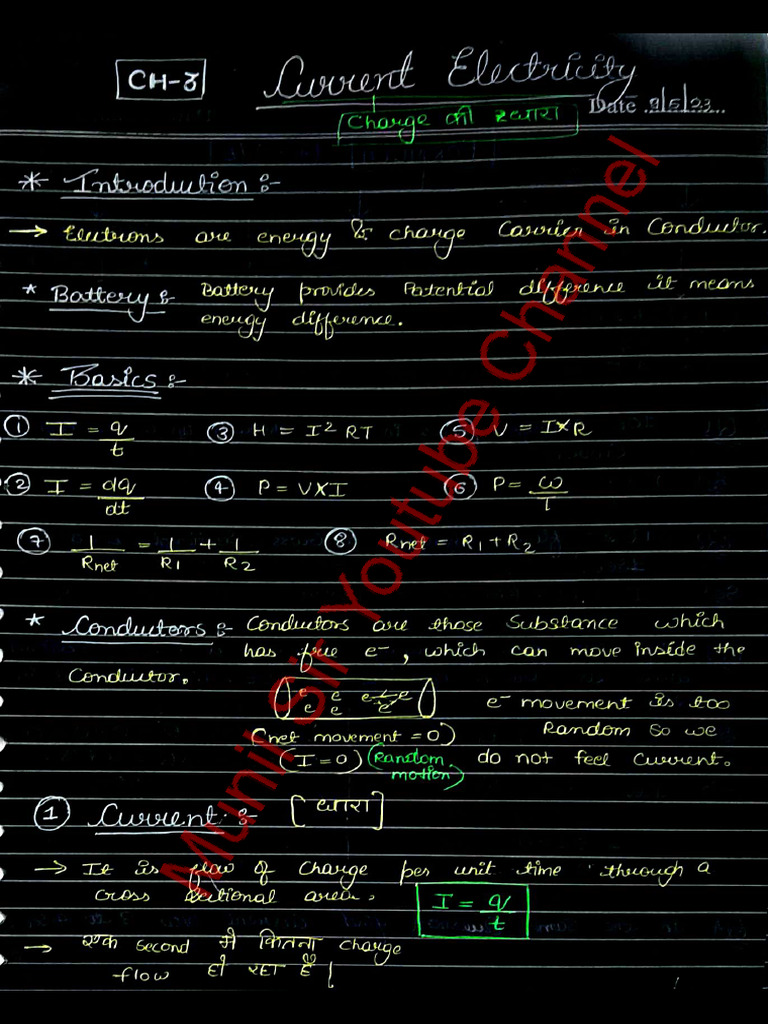 CH-3 Current Electricity
Date 9/5/23...
Charge की धारा
* Introduction :-
→ Electrons are energy & charge Carrier in Conductor.
* Battery :- Battery provides Potential difference it means
energy difference.
* Basics :-
① I = q/t ③ H = I² RT ⑤ V = I×R
② I = dq/dt ④ P = V×I ⑥ P = ω/T
⑦ 1/Rnet = 1/R1 + 1/R2 ⑧ Rnet = R1 + R2
* Conductors :- Conductors are those Substance which
has free e-, which can move inside the
Conductor.
e e e e
e e e
e- movement is too
(net movement = 0) Random so we
(I = 0) (Random do not feel current.
motion)
① Current :- [धारा]
→ It is flow of Charge per unit time through a
cross sectional area.
I = q/t
→ एक second में कितना charge
flow हो रहा है।
Munil Sir Youtube Channel